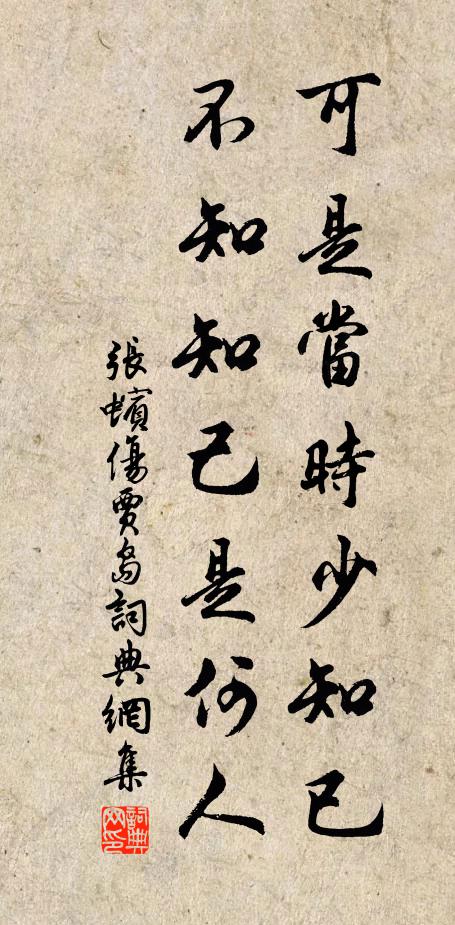 可是當時少知已
不知知己是何人
張蠙傷賈島詞典網集
詞典網印